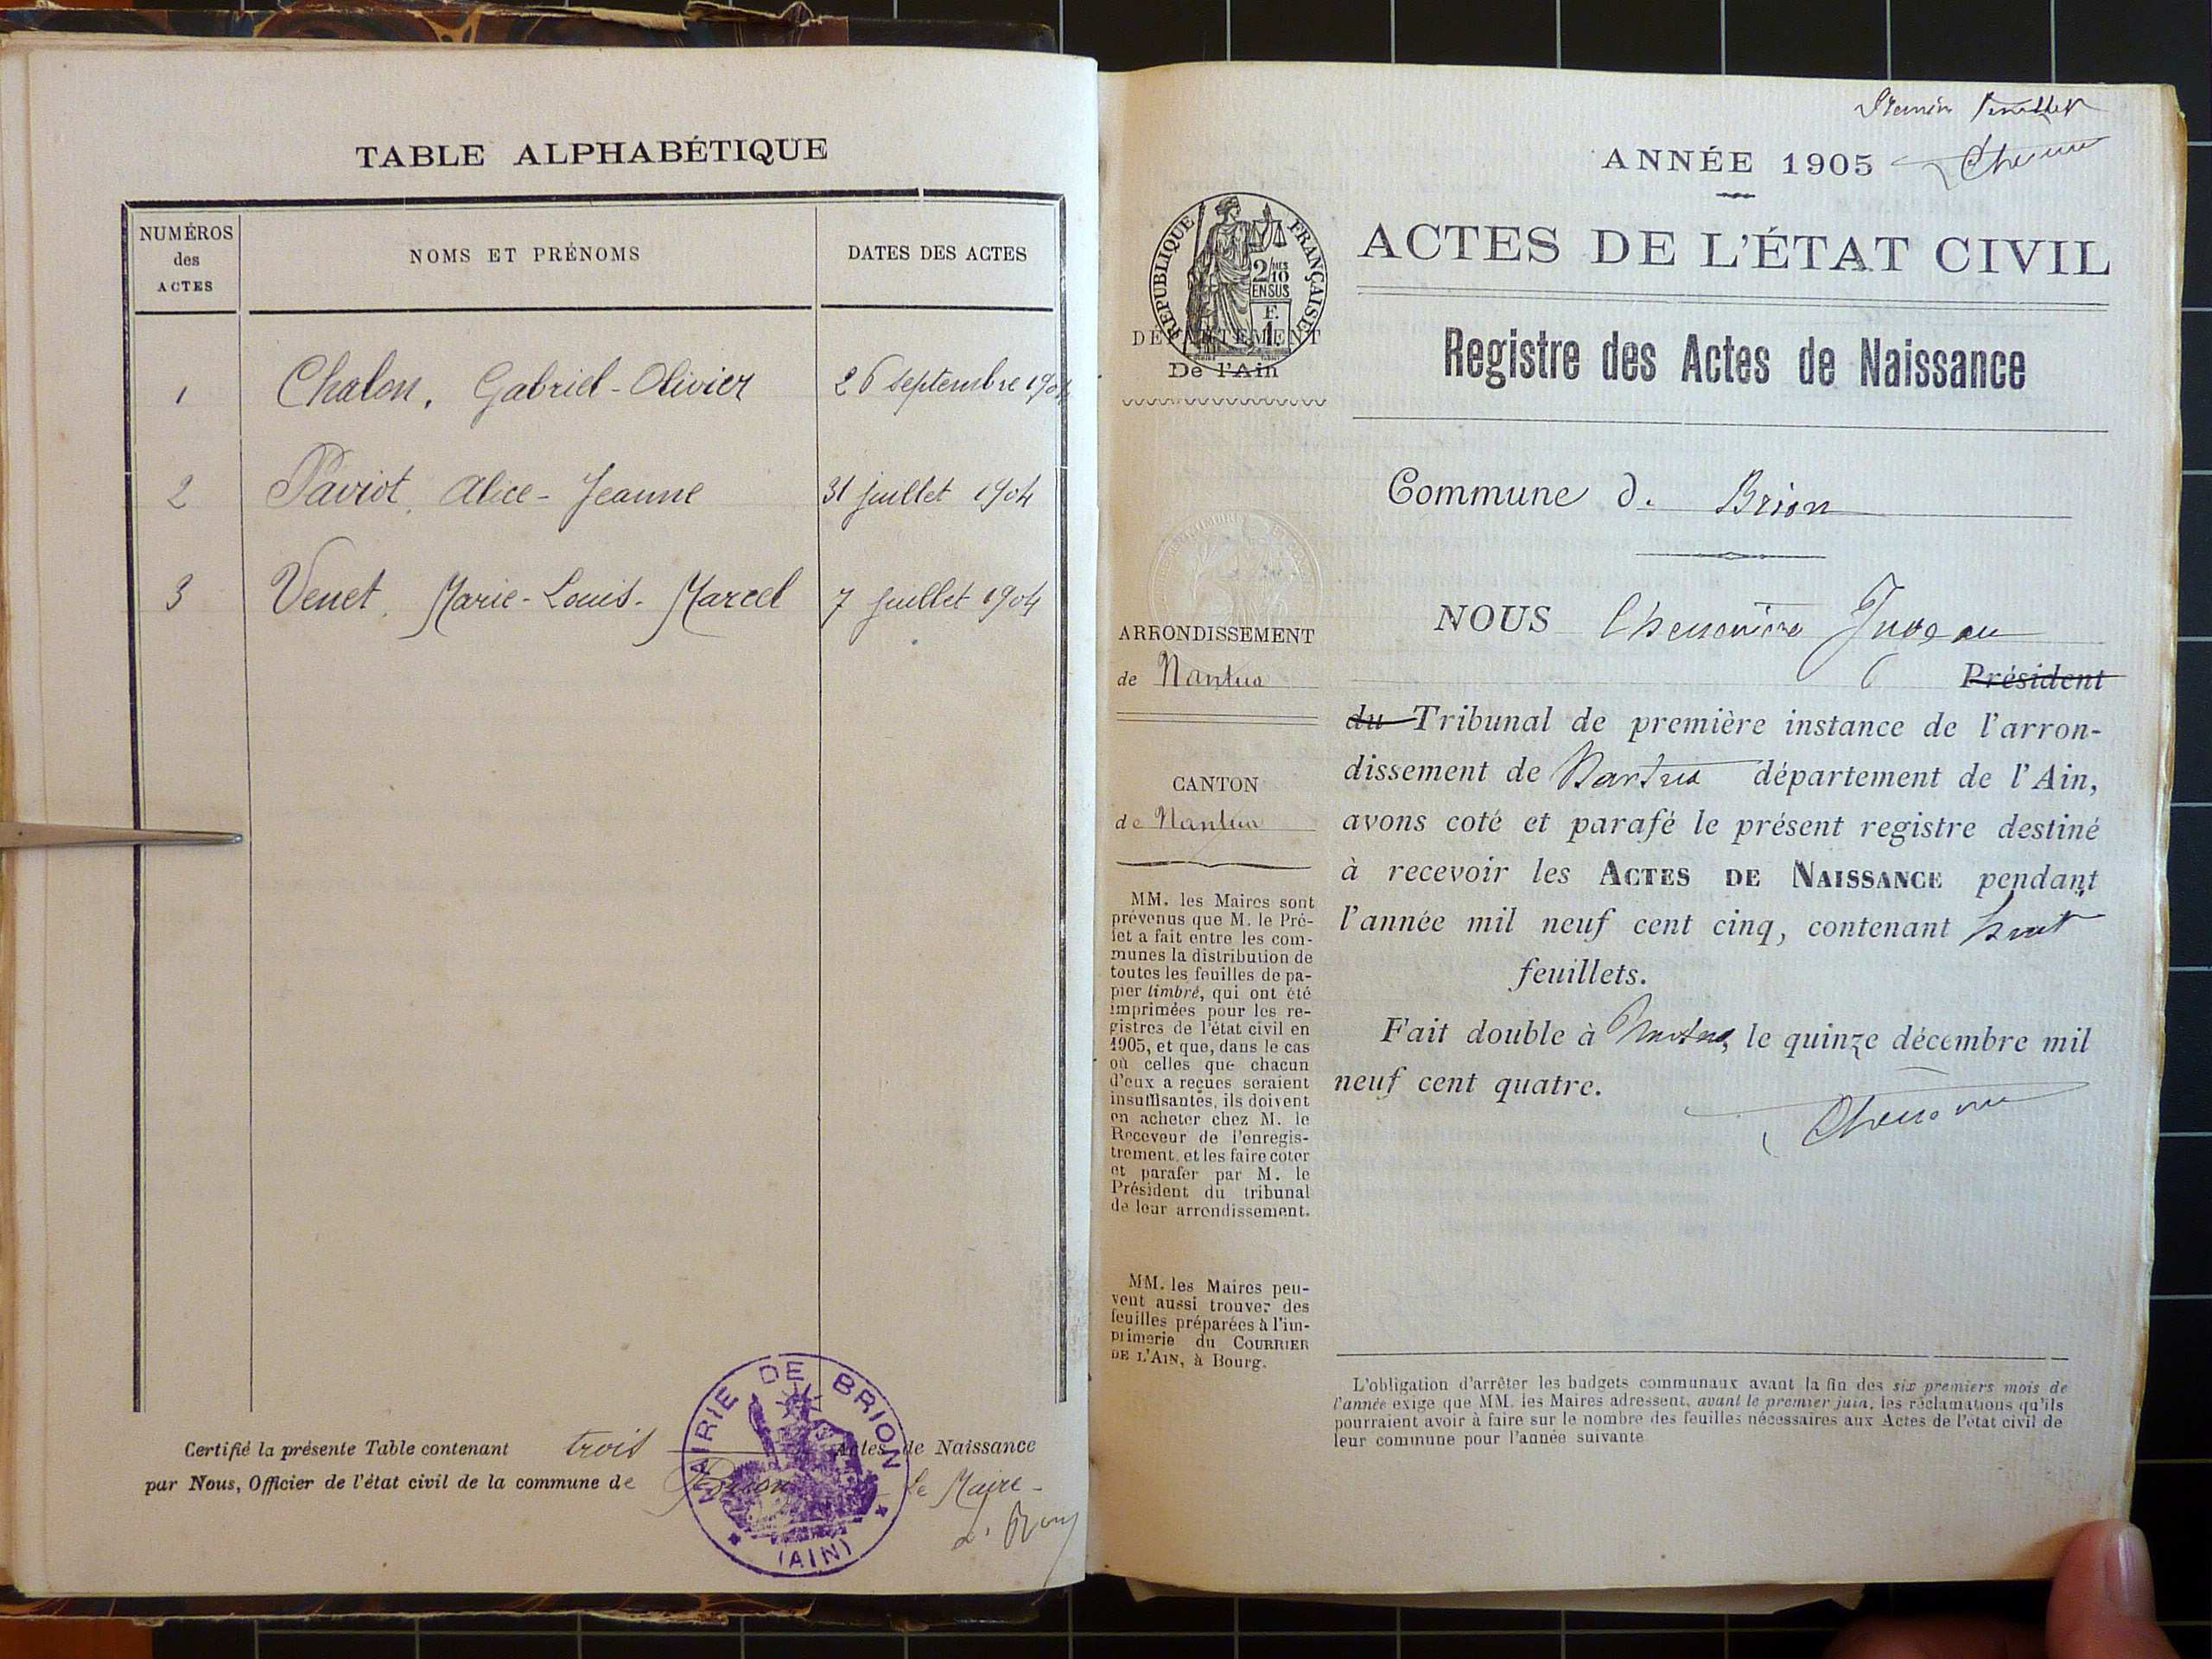 TABLE ALPHABÉTIQUE
NUMÉROS
des
ACTES
NOMS ET PRÉNOMS
DATES DES ACTES
1 Chalon, Gabriel-Olivier 26 septembre 1904
2 Paviot, Alice-Jeanne 31 juillet 1904
3 Venet, Marie-Louis-Marcel 7 juillet 1904
Certifié la présente Table contenant trois Actes de Naissance
par Nous, Officier de l'état civil de la commune de Brion Le Maire
MAIRIE DE BRION
(AIN)
ANNÉE 1905
RÉPUBLIQUE FRANÇAISE
2/10
EN SUS
F.
1
ACTES DE L'ÉTAT CIVIL
DÉPARTEMENT
De l'Ain
Registre des Actes de Naissance
Commune de Brion
ARRONDISSEMENT
de Nantua
CANTON
de Nantua
MM. les Maires sont
prévenus que M. le Pré-
fet a fait entre les com-
munes la distribution de
toutes les feuilles de pa-
pier timbré, qui ont été
imprimées pour les re-
gistres de l'état civil en
1905, et que, dans le cas
où celles que chacun
d'eux a reçues seraient
insuffisantes, ils doivent
en acheter chez M. le
Receveur de l'enregis-
trement, et les faire coter
et parafer par M. le
Président du tribunal
de leur arrondissement.
MM. les Maires peu-
vent aussi trouver des
feuilles préparées à l'im-
primerie du COURRIER
DE L'AIN, à Bourg.
NOUS Juge au
Président
du Tribunal de première instance de l'arron-
dissement de Nantua département de l'Ain,
avons coté et parafé le présent registre destiné
à recevoir les ACTES DE NAISSANCE pendant
l'année mil neuf cent cinq, contenant huit
feuillets.
Fait double à Nantua, le quinze décembre mil
neuf cent quatre.
L'obligation d'arrêter les budgets communaux avant la fin des six premiers mois de
l'année exige que MM. les Maires adressent, avant le premier juin, les réclamations qu'ils
pourraient avoir à faire sur le nombre des feuilles nécessaires aux Actes de l'état civil de
leur commune pour l'année suivante